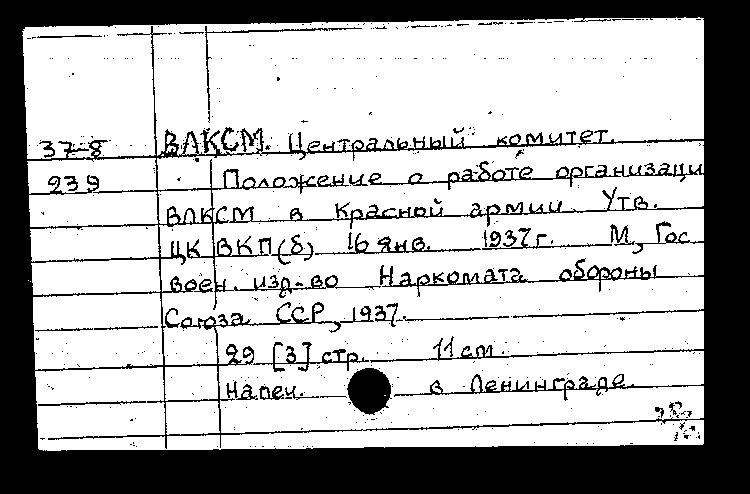 37-8 ВЛКСМ. Центральный комитет.
239 Положение о работе организаци
ВЛКСМ в Красной армии Утв.
ЦК ВКП(б) 16 янв. 1937 г. М, Гос
воен. изд-во Наркомата обороны
Союза ССР, 1937.
29 [3] стр. 11 см.
Напеч. в Ленинграде.